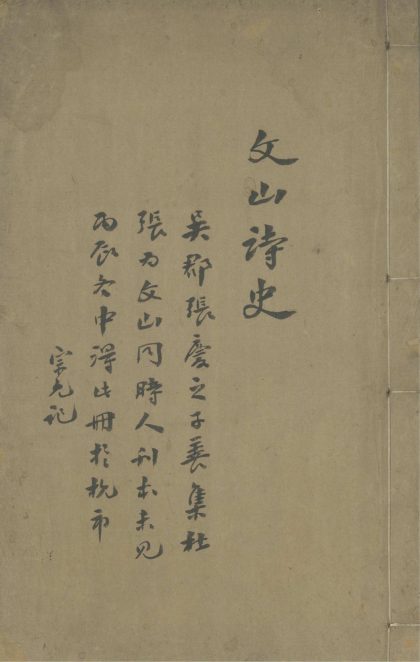 文山詩史
吳郡張慶之子善集杜
張為文山同時人刊本未見
丙辰冬中得此冊於杭市
宗九記